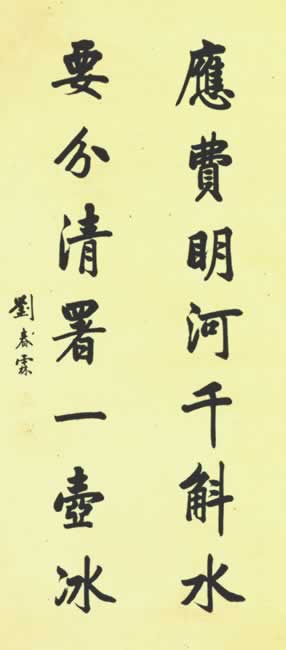 應費明河千斛水
要分清署一壺冰
劉春霖